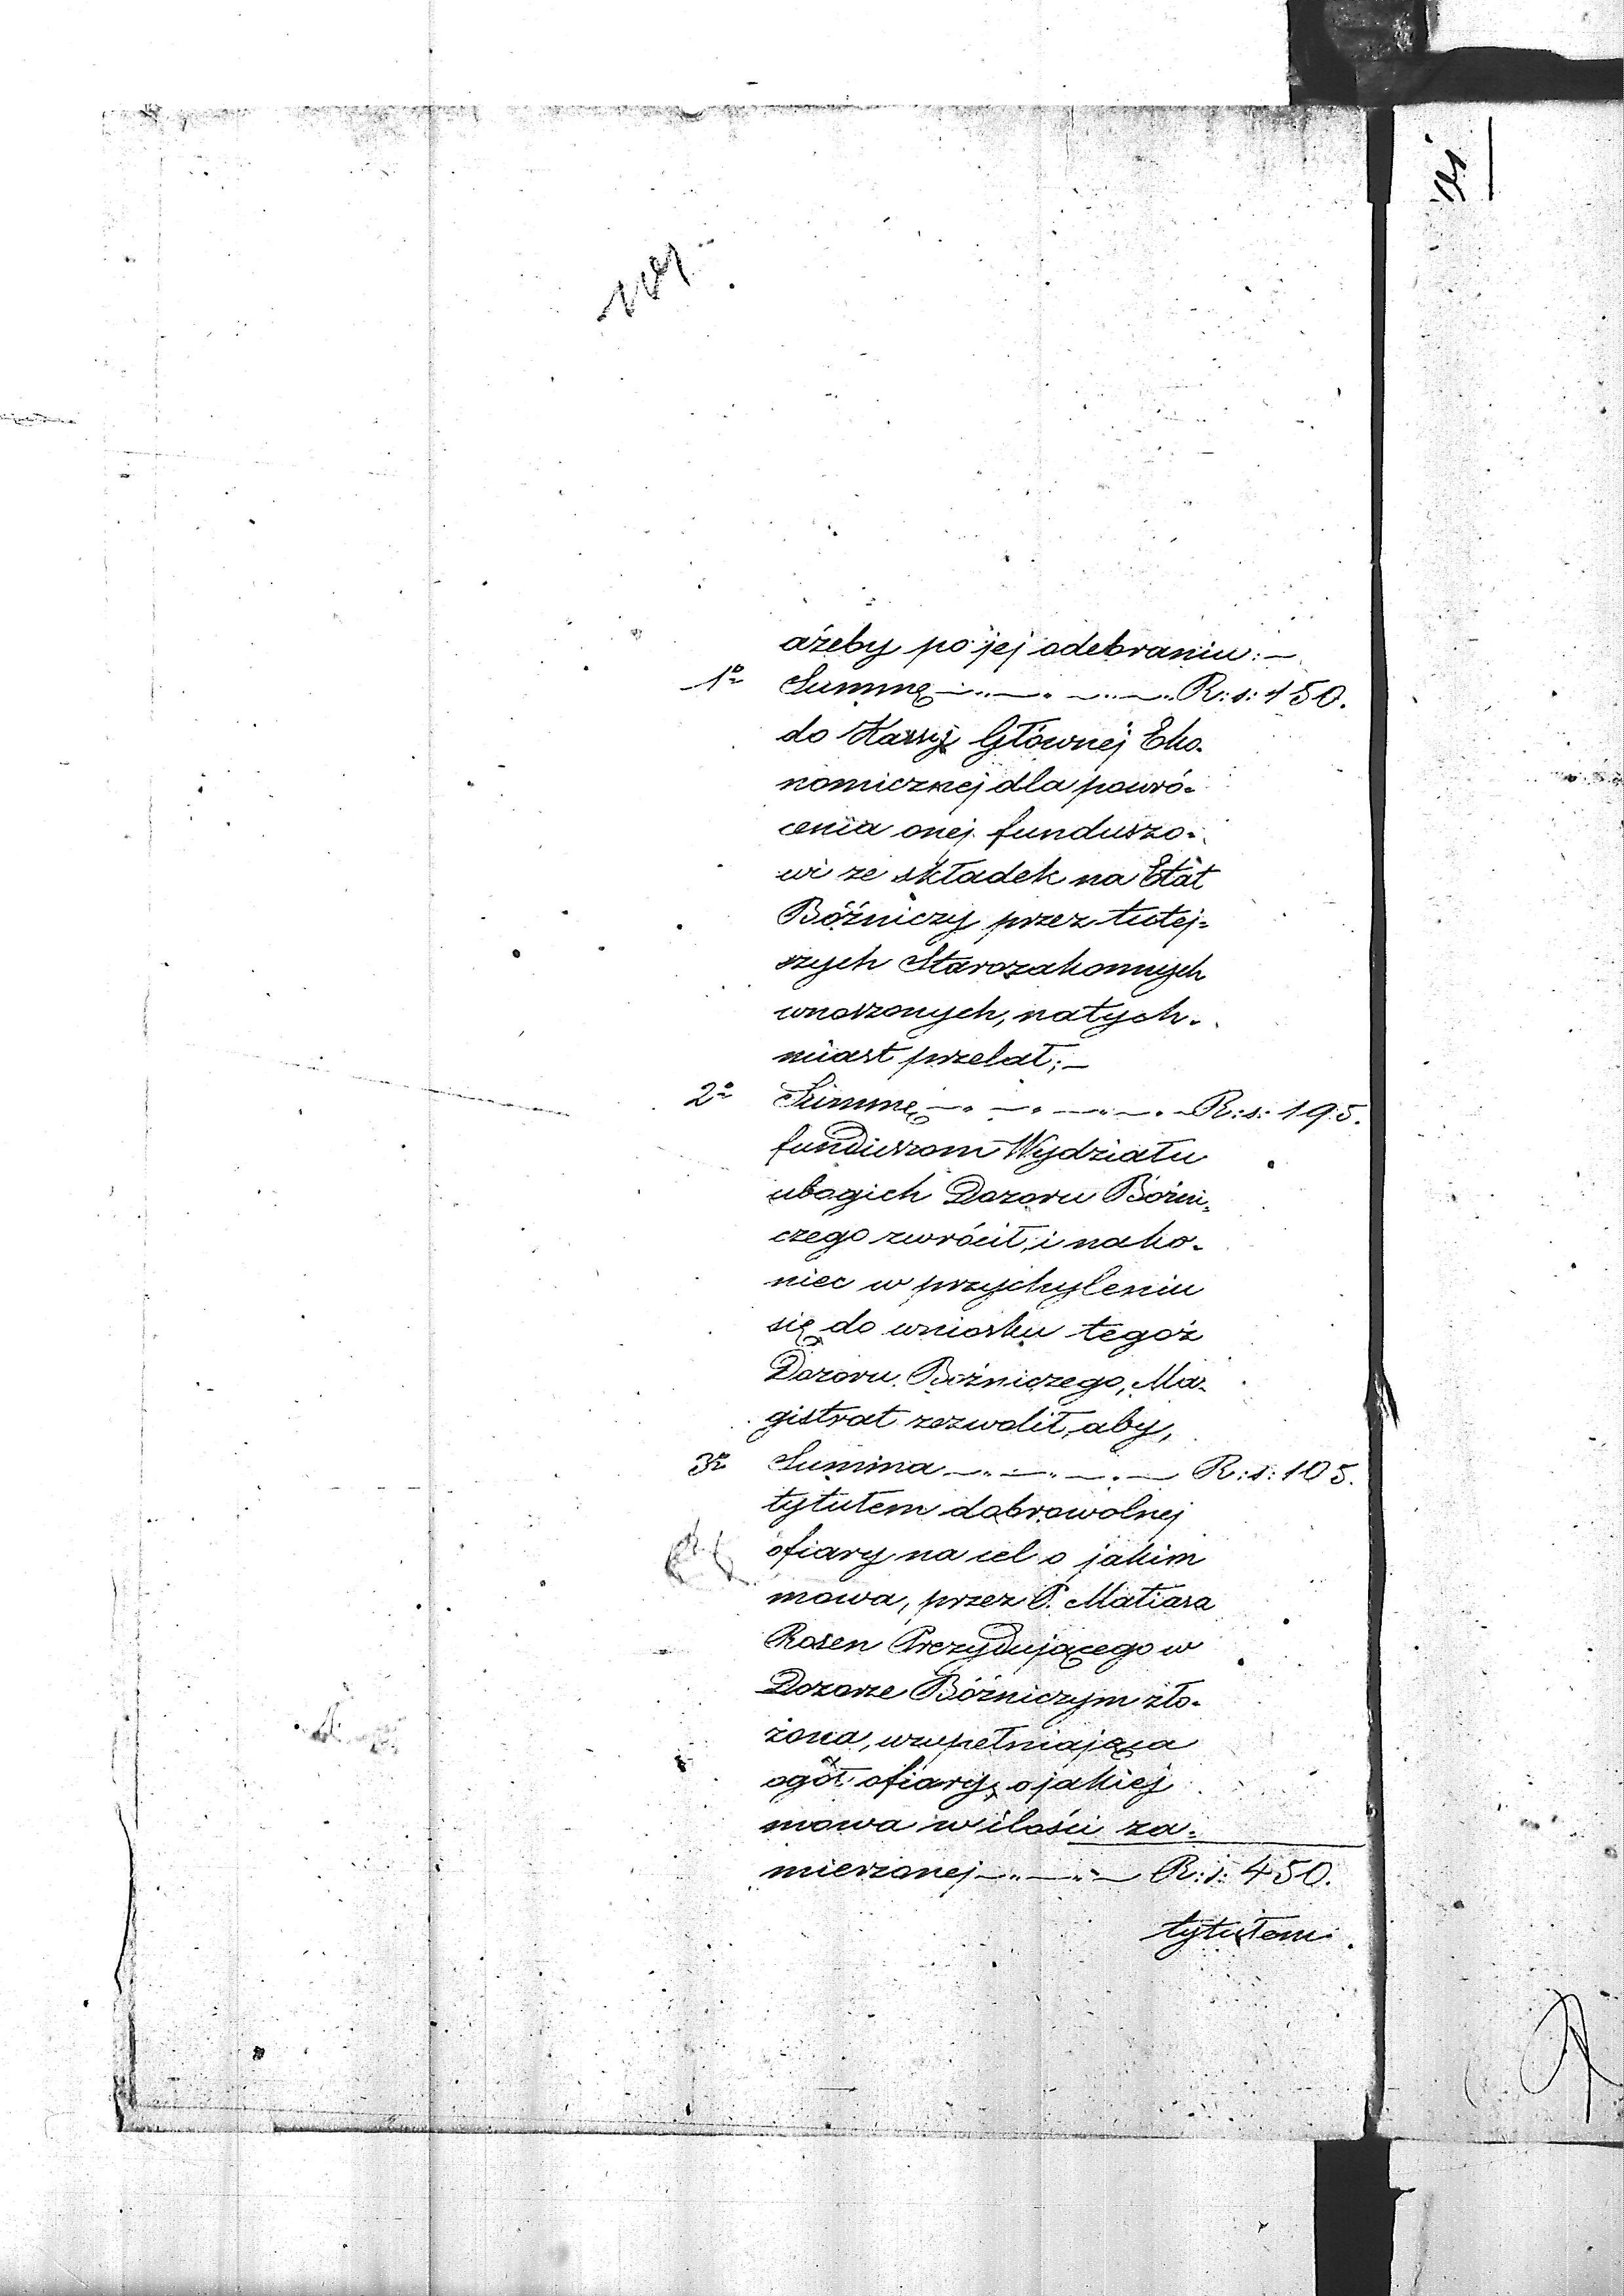 ażeby po jej odebraniu: —
1o Summę —..—. —..—..R: s: 150.
do Kassy Głównej Eko-
nomicznej dla powró-
cenia onej funduszo-
wi ze składek na Etat
Bóżniczy przez tutej-
szych Starozakonnych
wnoszonych, natych-
miast przelał; —
2o Summę —. —. —..—. —R: s: 195.
funduszom Wydziału
ubogich Dozoru Bóżni-
czego zwrócił, i nako-
niec w przychyleniu
się do wniosku tegoż
Dozoru Bóżniczego, Ma-
gistrat zezwolił, aby,
3o Summa —..—..—.— R: s: 105.
tytułem dobrowolnej
ofiary na cel o jakim
mowa, przez P. Matiasa
Rosen Prezydującego w
Dozorze Bóżniczym zło-
żona, uzupełniająca
ogół ofiary, o jakiej
mowa w ilości za-
mierzonej —..—..— R: s: 450.
tytułem